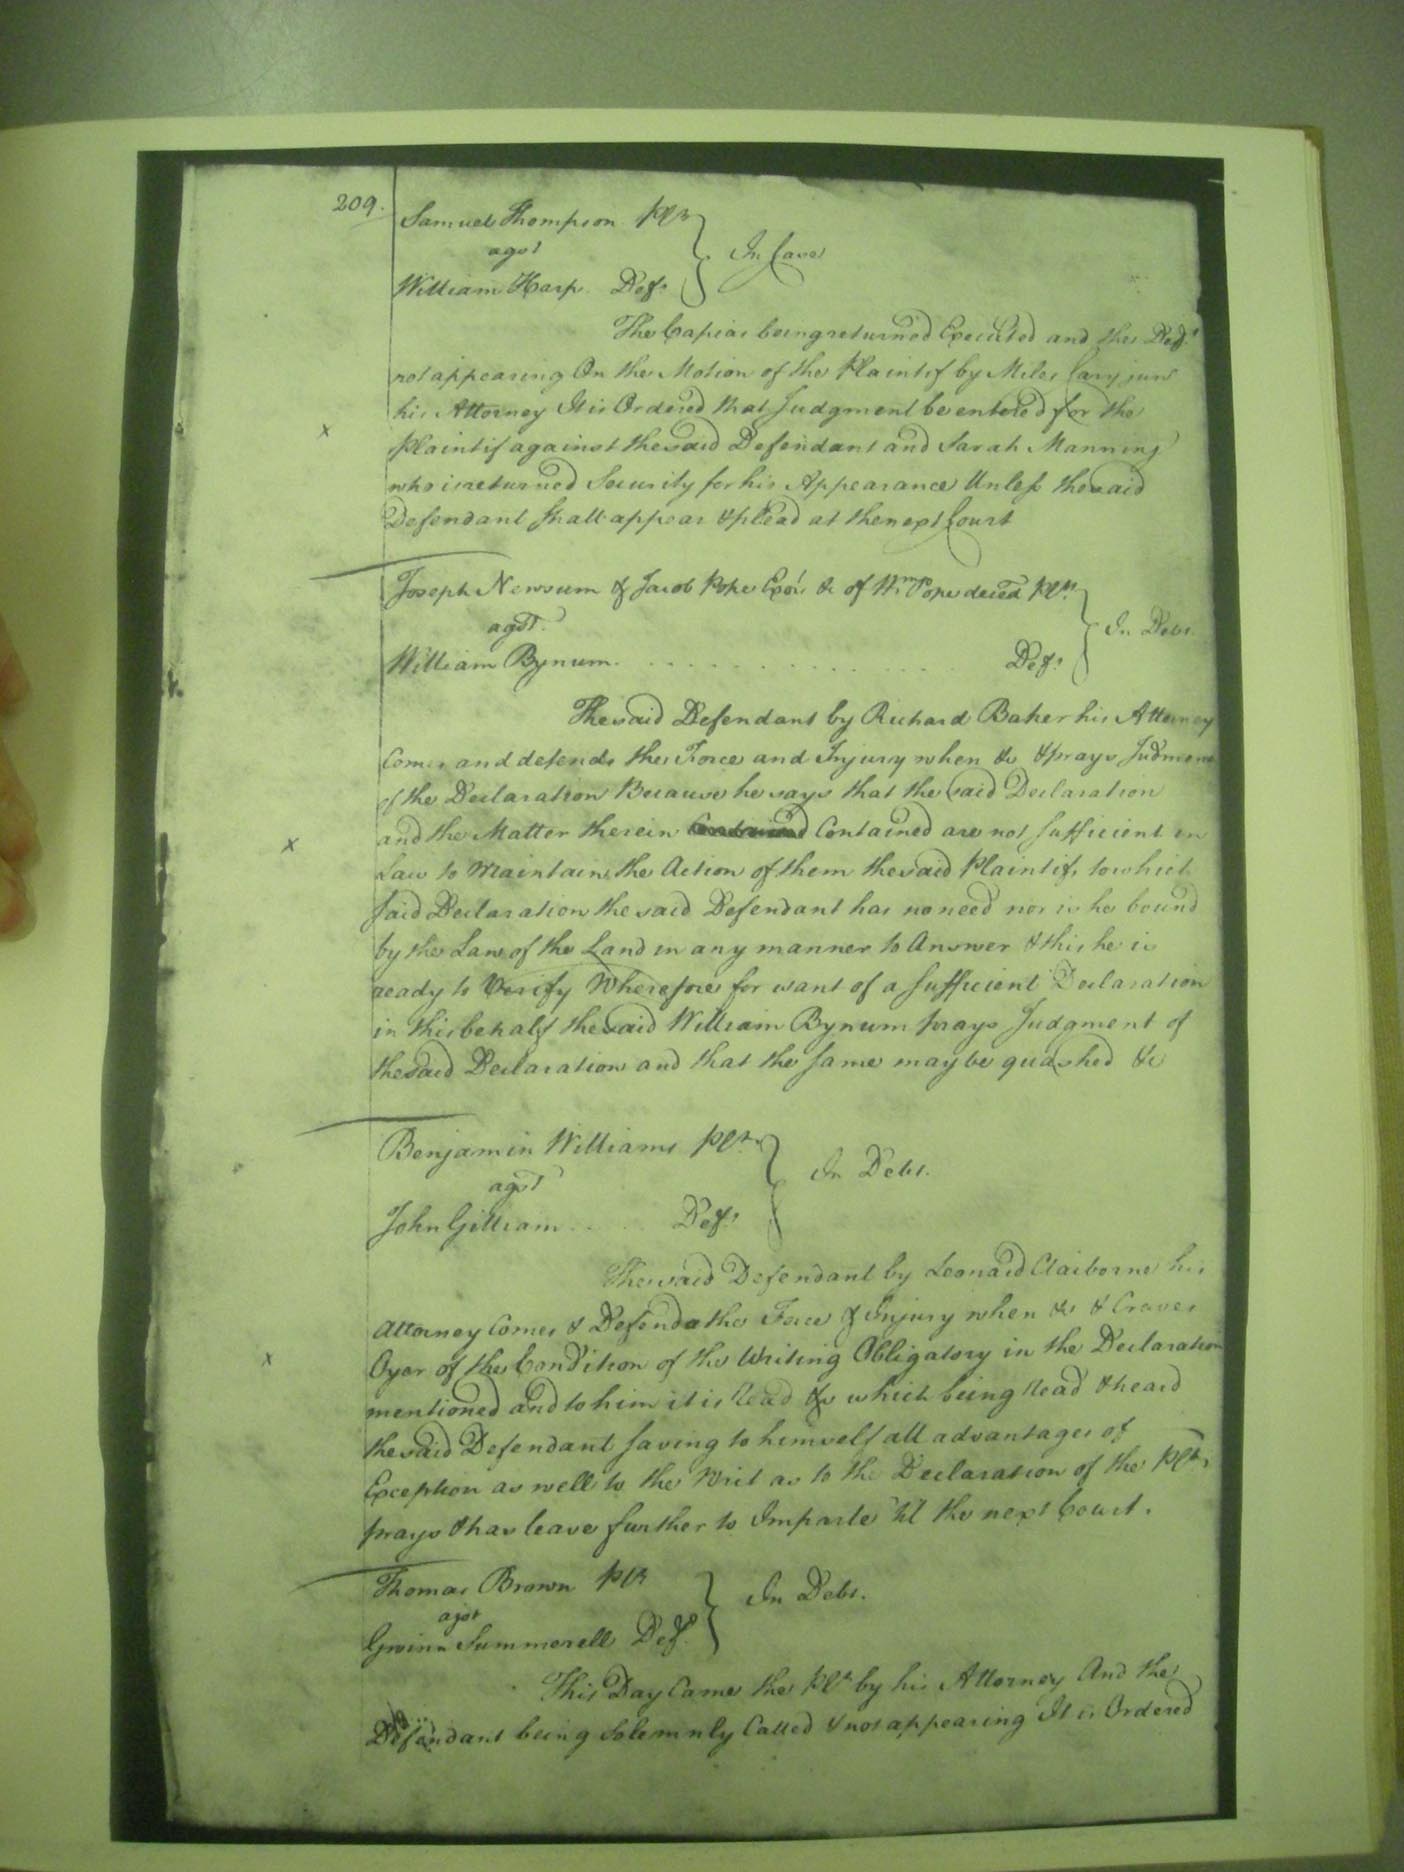 209.
Samuel Thompson Pltf
agst
William Harp Deft
In Case
The Capias being returned Executed and the Deft
not appearing On the Motion of the Plaintif by Miles Cary junr
his Attorney It is Ordered that Judgment be entered for the
Plaintif against the said Defendant and Sarah Manning
who is returned Security for his Appearance Unless the said
Defendant Shall appear & plead at the next Court
Joseph Newsum & Jacob Pope Exors &c of Wm Pope deced Plts
agst
William Bynum. Deft
In Debt
The said Defendant by Richard Baker his Attorney
Comes and defends the Force and Injury when &c & prays Judment
of the Declaration Because he says that the said Declaration
and the Matter therein Contained are not Sufficient in
Law to Maintain the Action of them the said Plaintifs to which
Said Declaration the said Defendant has no need nor is he bound
by the Law of the Land in any manner to Answer & this he is
ready to Verify Wherefore for want of a Sufficient Declaration
in this behalf the said William Bynum prays Judgment of
the said Declaration and that the Same may be quashed &c
Benjamin Williams Plt
agst
John Gilliam Deft
In Debt.
The said Defendant by Leonard Claiborne his
Attorney Comes & Defends the Force & Injury when &c & Craves
Oyer of the Condition of the Writing Obligatory in the Declaration
mentioned and to him it is Read &c which being Read & heard
the said Defendant Saving to himself all advantages of
Exception as well to the Writ as to the Declaration of the Plt
prays & has leave further to Imparle 'til the next Court.
Thomas Brown Plt
agst
Gwinn Summerell Deft
In Debt.
This Day Came the Plt by his Attorney And the
Defendant being Solemnly Called & not appearing It is Ordered